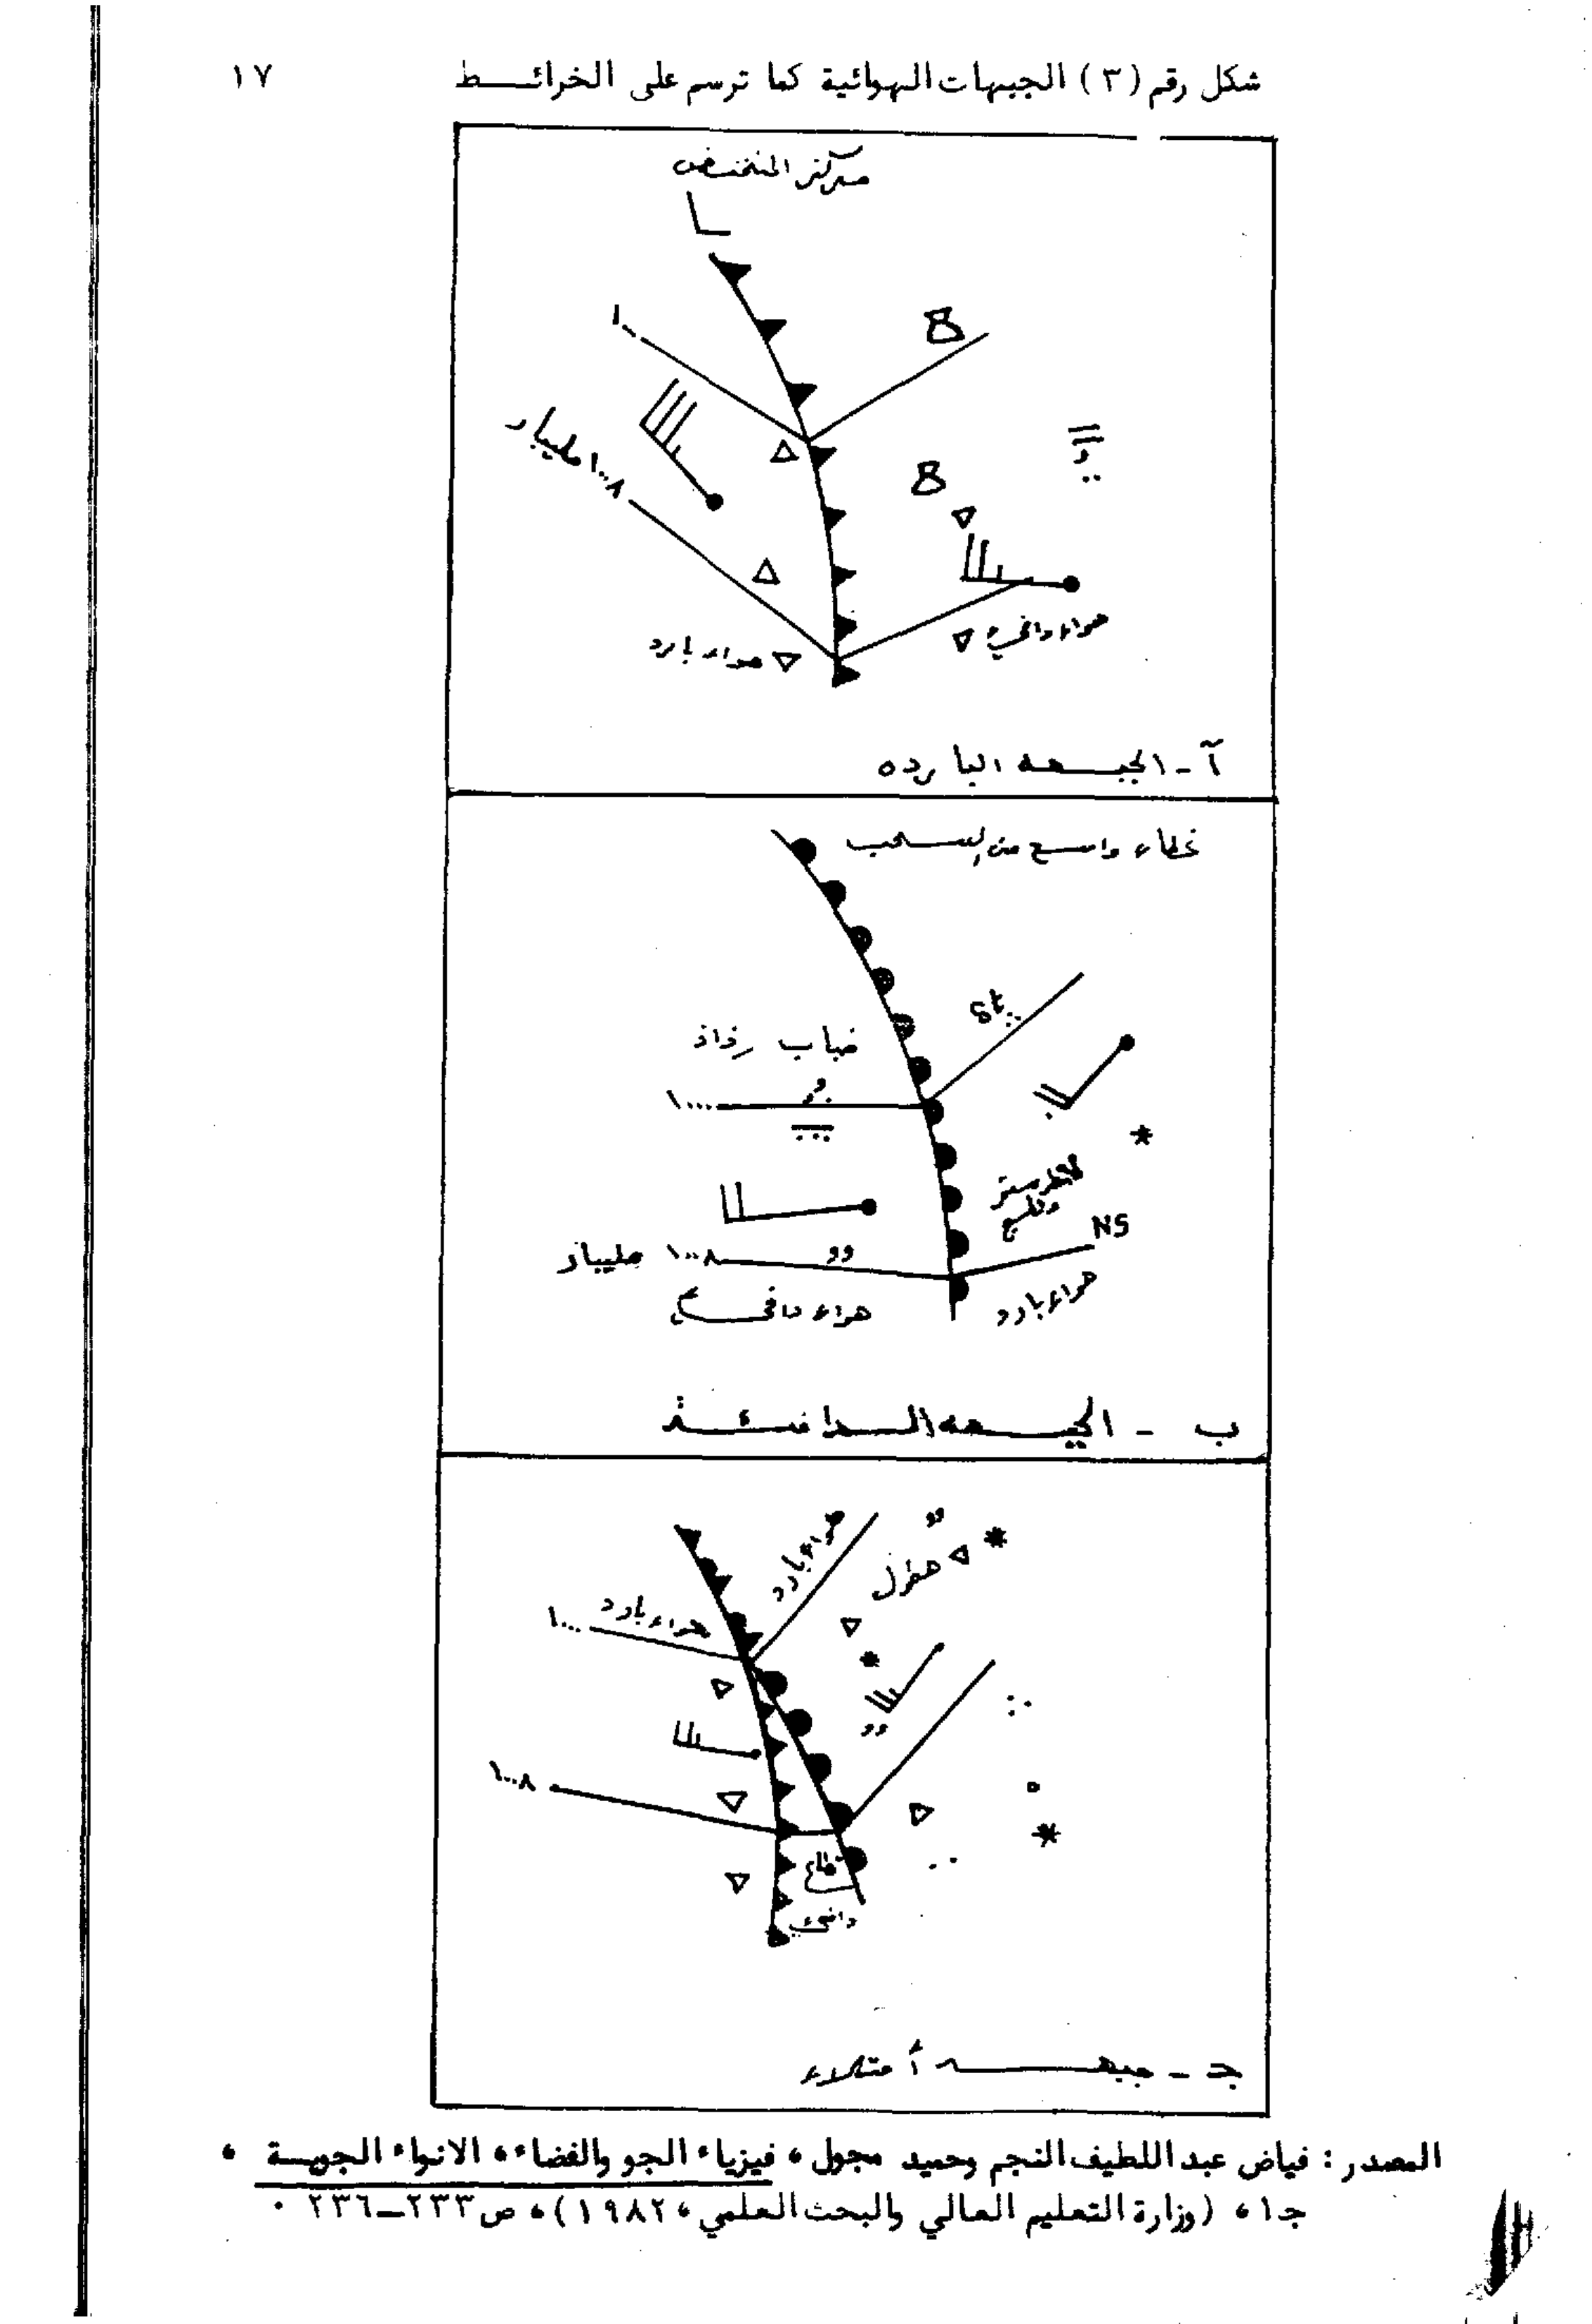 شكل رقم (٣) الجبهات الهوائية كما ترسم على الخرائــط
١٧
مركز المنخفض
L
١٠٠٠
١٠٠٨ مليبار
هواء دافيء
هواء بارد
آ - الجبــهه البارده
غطاء واسع من السحب
St
ضباب رذاذ
١٠٠٠
NS
١٠٠٨ مليبار
هواء دافـيء
هواء بارد
ب - الجبــهه الــدافئــة
هواء بارد
هواء بارد
١٠٠٠
١٠٠٨
دافيء
جـ - جبهــه أمتلاء
المصدر : فياض عبد اللطيف النجم وحميد مجول ، فيزياء الجو والفضاء ، الانواء الجويــة ،
جـ١ ، (وزارة التعليم العالي والبحث العلمي ، ١٩٨٢) ، ص٢٣٣ــ٢٣٦ ٠